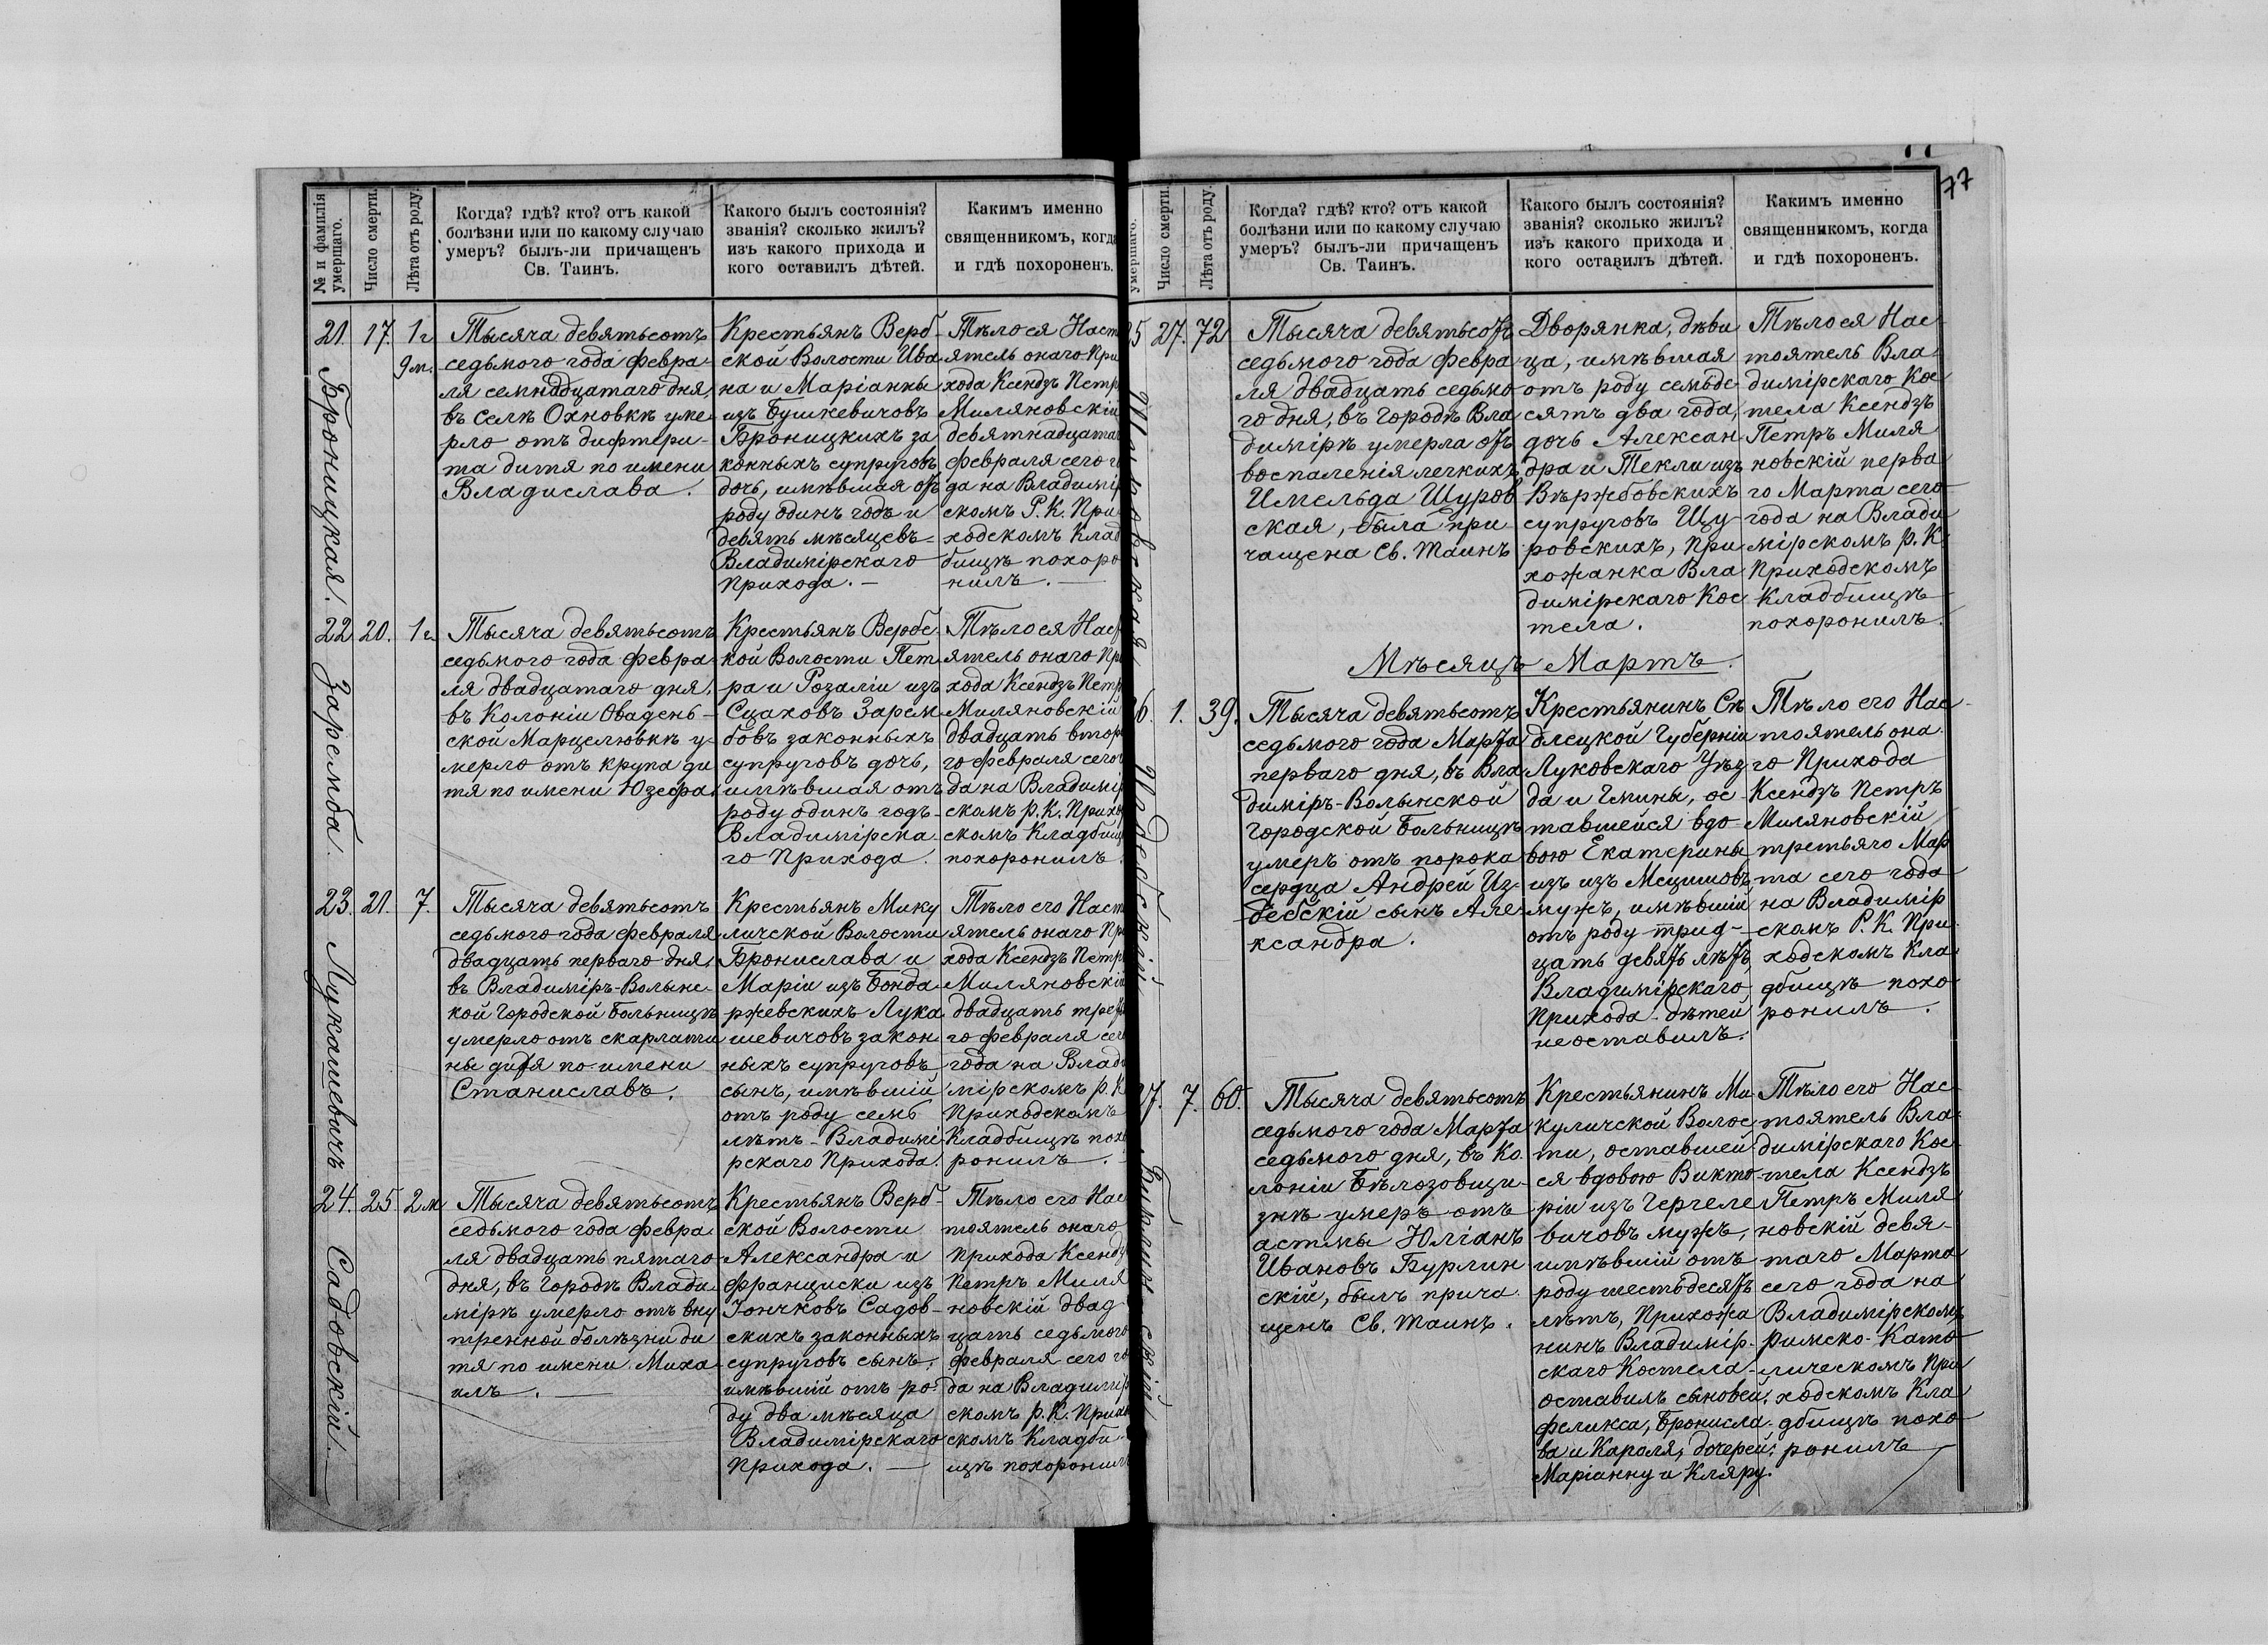 77
№ и фамилія умершаго.
Число смерти.
Лѣта отъ роду.
Когда? гдѣ? кто? отъ какой
болѣзни или по какому случаю
умеръ? былъ-ли причащенъ
Св. Таинъ.
Какого былъ состоянія?
званія? сколько жилъ?
изъ какого прихода и
кого оставилъ дѣтей.
Какимъ именно
священникомъ, когда
и гдѣ похороненъ.
21. Броницкая.
17.
1 г.
9 м.
Тысяча девятьсотъ
седьмого года февра-
ля семнадцатаго дня,
въ селѣ Охновкѣ уме-
рло отъ дифтери-
та дитя по имени
Владислава.
Крестьянъ Верб-
ской Волости Ива
на и Маріанны
изъ Бушкевичовъ
Броницкихъ за
конныхъ супруговъ
дочь, имѣвшая отъ
роду одинъ годъ и
девять мѣсяцевъ-
Владимірскаго
Прихода. —
Тѣло ея Наст
ятель онаго При
хода Ксендзъ Петр
Миляновскій
девятнадцата
февраля сего г
да на Владимір
скомъ Р. К. При
ходскомъ Клад
бищѣ похоро
нилъ. —
22 Заремба.
20.
1 г.
Тысяча девятьсотъ
седьмого года февра-
ля двадцатаго дня,
въ Колоніи Овадень-
ской Марцелювкѣ у-
мерло отъ крупа ди
тя по имени Юзефа.
Крестьянъ Вербс-
кой Волости Пет-
ра и Розаліи изъ
Сцаховъ Зарем-
бовъ законныхъ
супруговъ дочь,
имѣвшая отъ
роду одинъ годъ-
Владимірска-
го Прихода.
Тѣло ея Наст
ятель онаго При
хода Ксендзъ Петр
Миляновскій
двадцать втор
го февраля сего
да на Владимір
скомъ р. К. Прихо
скомъ Кладбищ
похоронилъ.
23. Лукашевичъ
21.
7.
Тысяча девятьсотъ
седьмого года февраля
двадцать перваго дня,
въ Владиміръ-Волынс-
кой Городской Больницѣ
умерло отъ скарлати
ны дитя по имени
Станиславъ.
Крестьянъ Мику
личской Волости
Бронислава и
Маріи изъ Бонда-
ржевскихъ Лука-
шевичовъ закон-
ныхъ супруговъ
сынъ, имѣвшій
отъ роду семь
лѣтъ - Владимі-
рскаго Прихода.
Тѣло его Наст
ятель онаго При
хода Ксендзъ Петр
Миляновскій
двадцать треть
го февраля сего
года на Влади
мірскомъ р. К
Приходскомъ
Кладбищѣ похо
ронилъ.
24. Садовскій.
25.
2 м
Тысяча девятьсотъ
седьмого года февра-
ля двадцать пятаго
дня, въ городѣ Влади-
мірѣ умерло отъ вну
тренной болѣзни ди
тя по имени Миха-
илъ. —
Крестьянъ Верб-
ской Волости
Александра и
Франциски изъ
Іончковъ Садов-
скихъ законныхъ
супруговъ сынъ,
имѣвшій отъ ро-
ду два мѣсяца
Владимірскаго
Прихода. —
Тѣло его Нас
тоятель онаго
Прихода Ксендз
Петръ Миля
новскій двад
цать седьмого
февраля сего го
да на Владимір
скомъ р. К. Приход
скомъ Кладби
щѣ похоронил
умершаго.
Число смерти.
Лѣта отъ роду.
Когда? гдѣ? кто? отъ какой
болѣзни или по какому случаю
умеръ? былъ-ли причащенъ
Св. Таинъ.
Какого былъ состоянія?
званія? сколько жилъ?
изъ какого прихода и
кого оставилъ дѣтей.
Какимъ именно
священникомъ, когда
и гдѣ похороненъ.
25
27.
72
Тысяча девятьсотъ
седьмого года февра
ля двадцать седьмо
го дня, въ городѣ Вла
димірѣ умерла отъ
воспаленія легкихъ
Имельда Щуров
ская, была при
чащена Св. Таинъ
Дворянка, дѣви
ца, имѣвшая
отъ роду семьде
сятъ два года,
дочь Алексан-
дра и Текли изъ
Вѣржбовскихъ
супруговъ Щу-
ровскихъ, при
хожанка Вла
димірскаго Кос
тела.
Тѣло ея Нас-
тоятель Вла
димірскаго Кос
тела Ксендзъ
Петръ Миля
новскій перва
го Марта сего
года на Влади
мірскомъ р. К.
Приходскомъ
Кладбищѣ
похоронилъ.
Мѣсяцъ Мартъ.
26.
1.
39.
Тысяча девятьсотъ
седьмого года Марта
перваго дня, въ Вла
диміръ-Волынской
Городской Больницѣ
умеръ отъ порока
сердца Андрей Из-
дебскій сынъ Але-
ксандра.
Крестьянинъ Сѣ
длецкой Губерніи
Луковскаго Уѣз
да и Гмины, ос-
тавшейся вдо
вою Екатерины
изъ изъ Мецишовъ
мужъ, имѣвшій
отъ роду трид-
цать девять лѣтъ,
Владимірскаго
Прихода - дѣтей
не оставилъ.
Тѣло его Нас-
тоятель она-
го Прихода
Ксендзъ Петръ
Миляновскій
третьяго Мар
та сего года
на Владимір
скомъ Р. К. При-
ходскомъ Кла
дбищѣ похо
ронилъ.
27.
7.
60.
Тысяча девятьсотъ
седьмого года Марта
седьмого дня, въ Ко-
лоніи Бѣлозовщи-
знѣ умеръ отъ
астмы Юліанъ
Ивановъ Бурлин
скій, былъ прича-
щенъ Св. Таинъ.
Крестьянинъ Ми-
куличской Волос
ти, оставшей
ся вдовою Викто-
ріи изъ Гергеле
вичовъ мужъ,
имѣвшій отъ
роду шестьдесятъ
лѣтъ, Прихожа
нинъ Владимір-
скаго Костела -
оставилъ сыновей:
Феликса, Бронисла-
ва и Кароля, дочерей:
Маріанну и Кляру.
Тѣло его Нас-
тоятель Вла-
димірскаго Кос-
тела Ксендзъ
Петръ Миля
новскій девя-
таго Марта
сего года на
Владимірскомъ
римско-Като
лическомъ При
ходскомъ Кла
дбищѣ похо
ронилъ